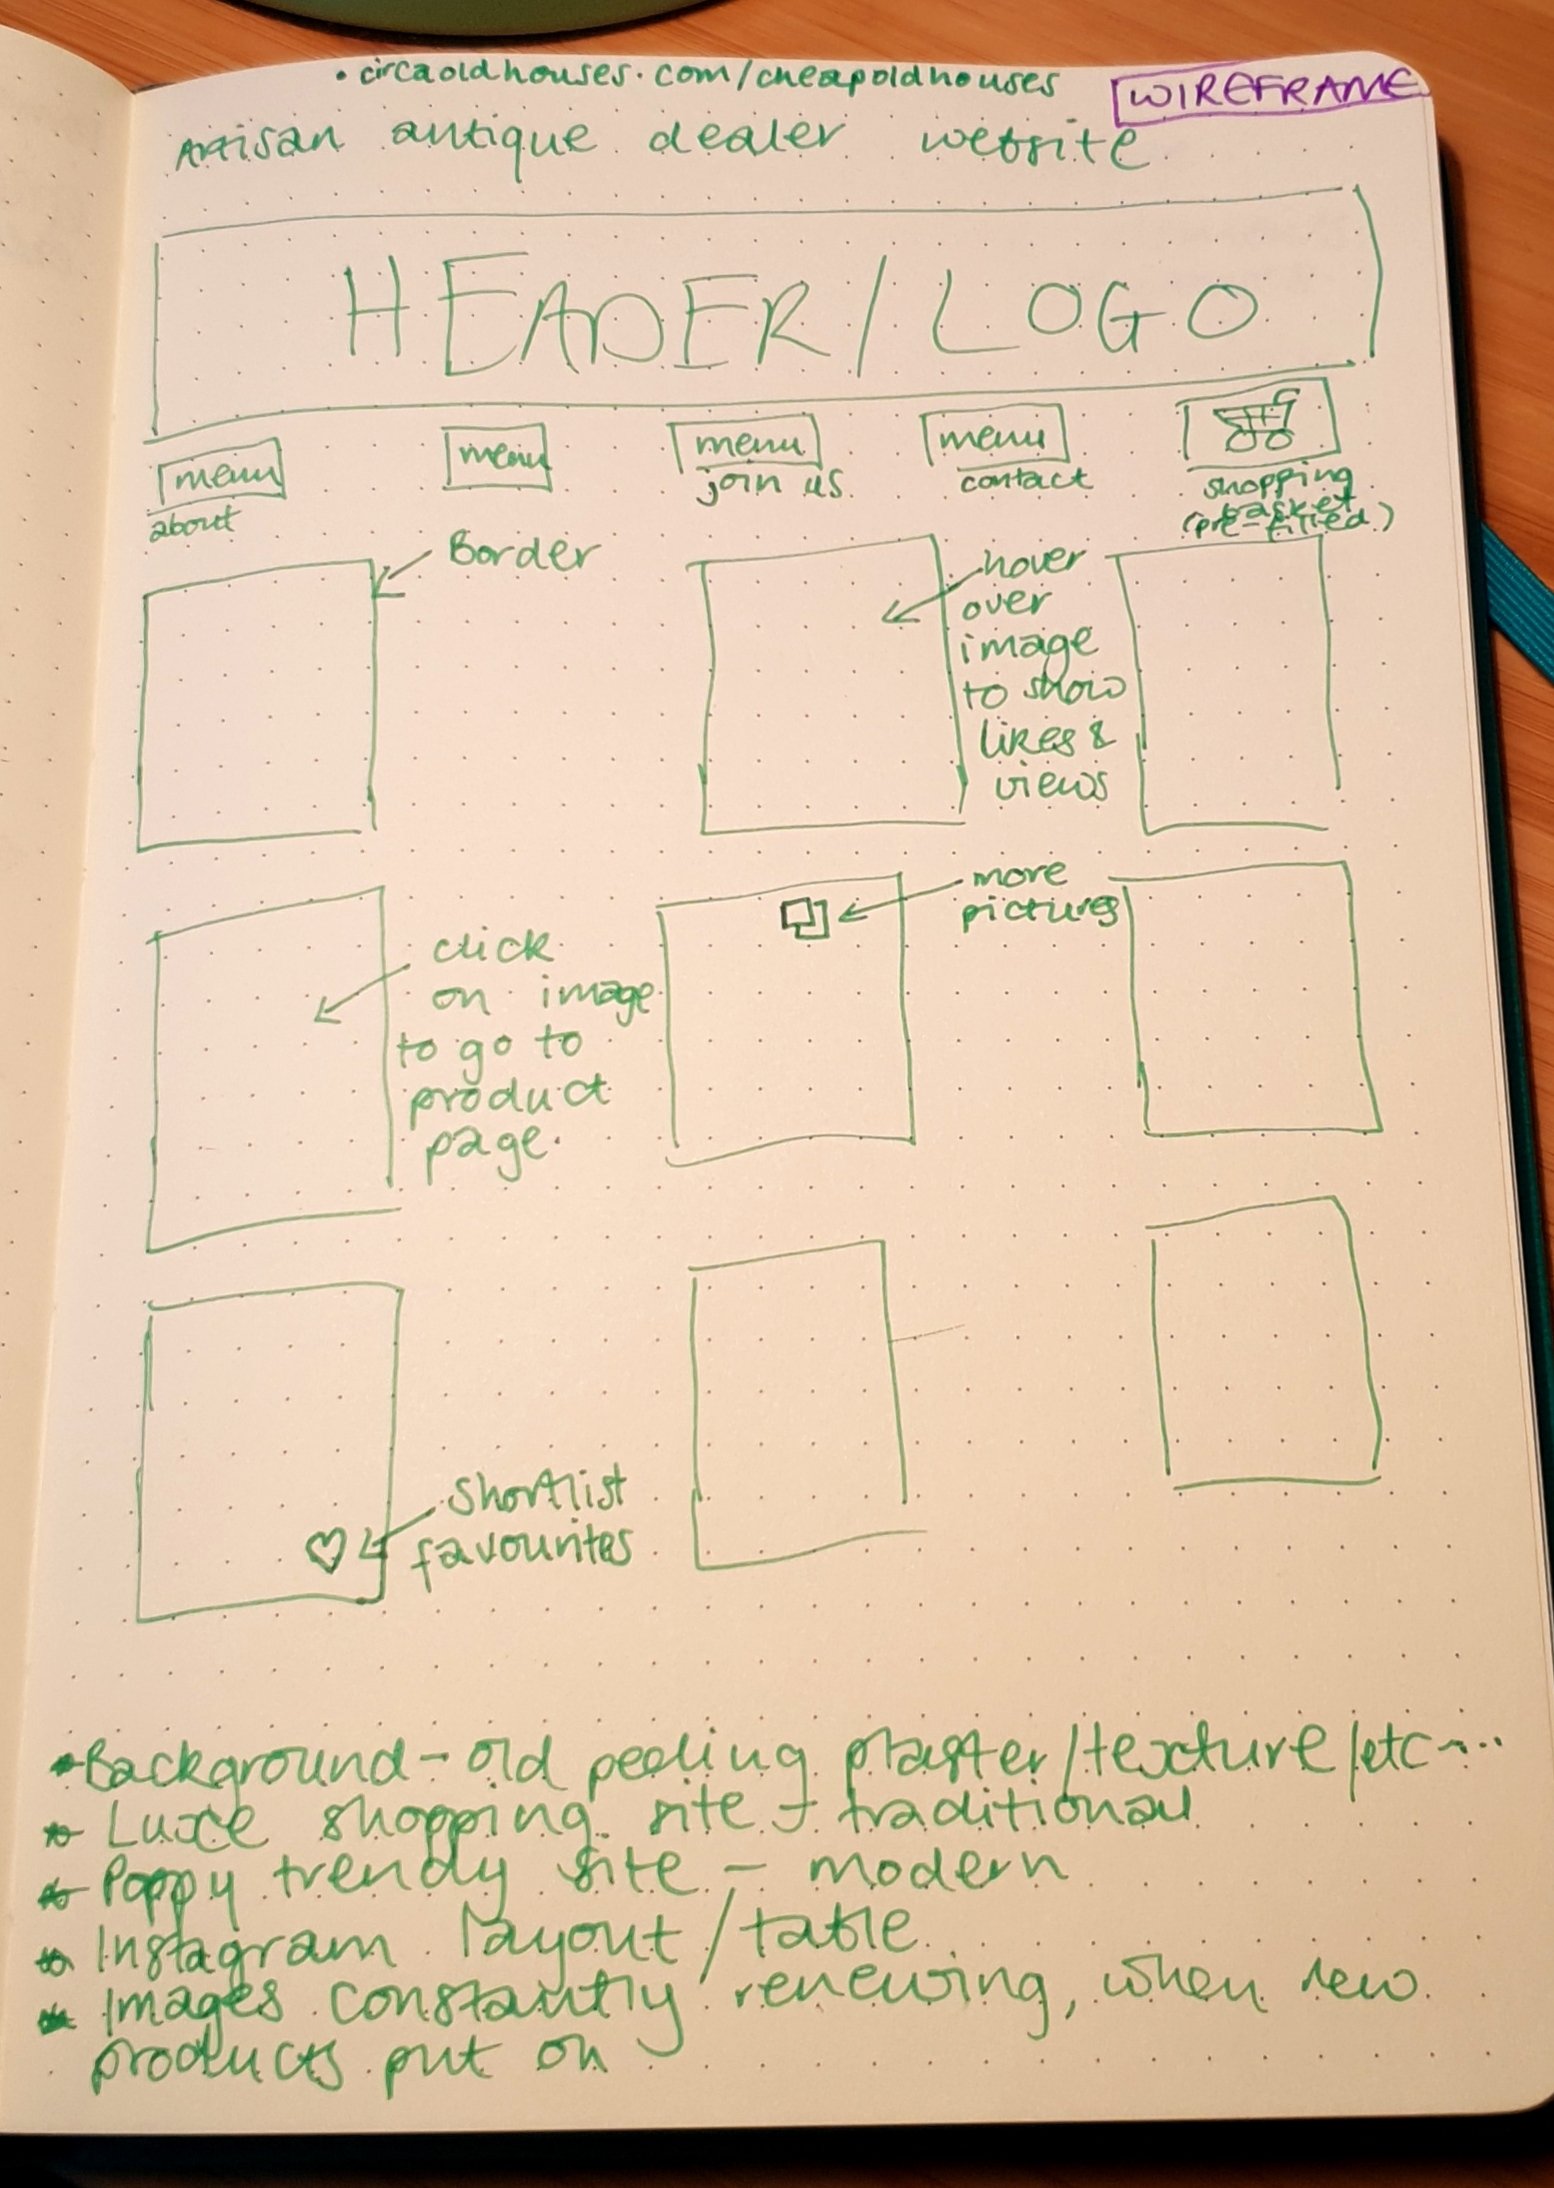 • circaoldhouses.com/cheapoldhouses
WIREFRAME
Artisan antique dealer website
HEADER/LOGO
menu
about
menu
menu
join us
menu
contact
shopping
basket
(pre-filled)
Border
hover
over
image
to show
likes &
views
click
on image
to go to
product
page.
more
pictures
Shortlist
favourites
*Background - old peeling plaster/texture/etc...
* Luxe shopping site - traditional
* Poppy trendy site - modern
* Instagram layout/table
* Images constantly renewing, when new
products put on